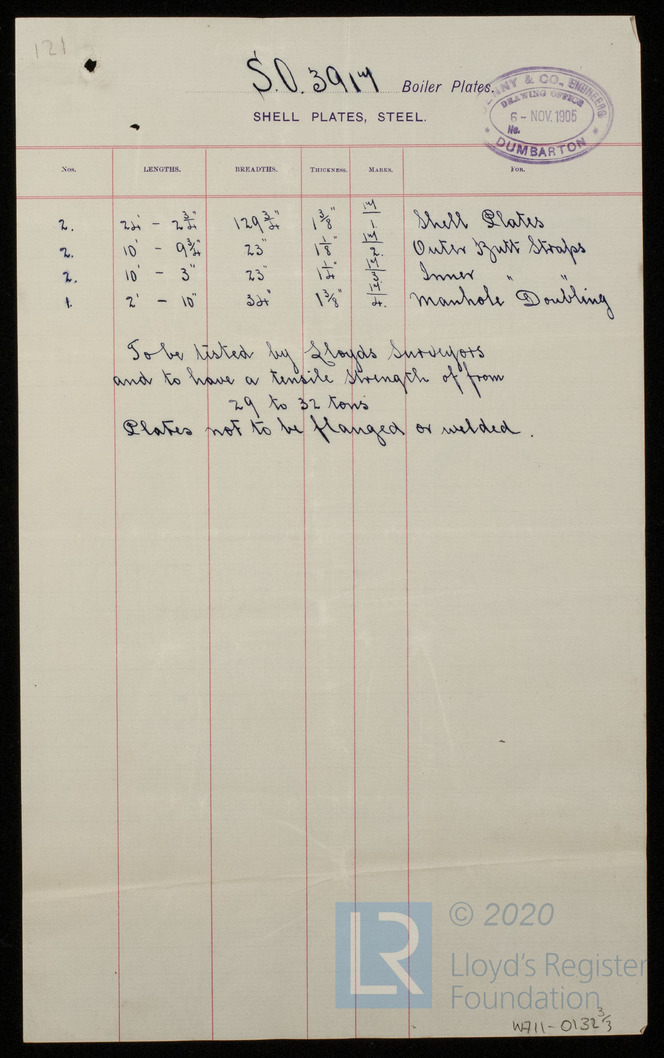 121
S.O. 391M Boiler Plates.
DENNY & CO. ENGINEERS
DRAWING OFFICE
6 - NOV. 1905
No.
DUMBARTON
SHELL PLATES, STEEL.
Nos. LENGTHS. BREADTHS. THICKNESS. MARKS. FOR.
2. 24' - 2 3/4" 129 3/4" 1 3/8" M/1 Shell Plates
2. 10' - 9 3/4" 23" 1 1/8" M/2 Outer Butt Straps
2. 10' - 3" 23" 1 1/4" M/3 Inner " "
1. 2' - 10" 34" 1 3/8" M/4. Manhole Doubling
To be tested by Lloyds Surveyors
and to have a tensile strength of from
29 to 32 tons
Plates not to be flanged or welded.
LR
© 2020
Lloyd's Register
Foundation
W711-0132 3/3